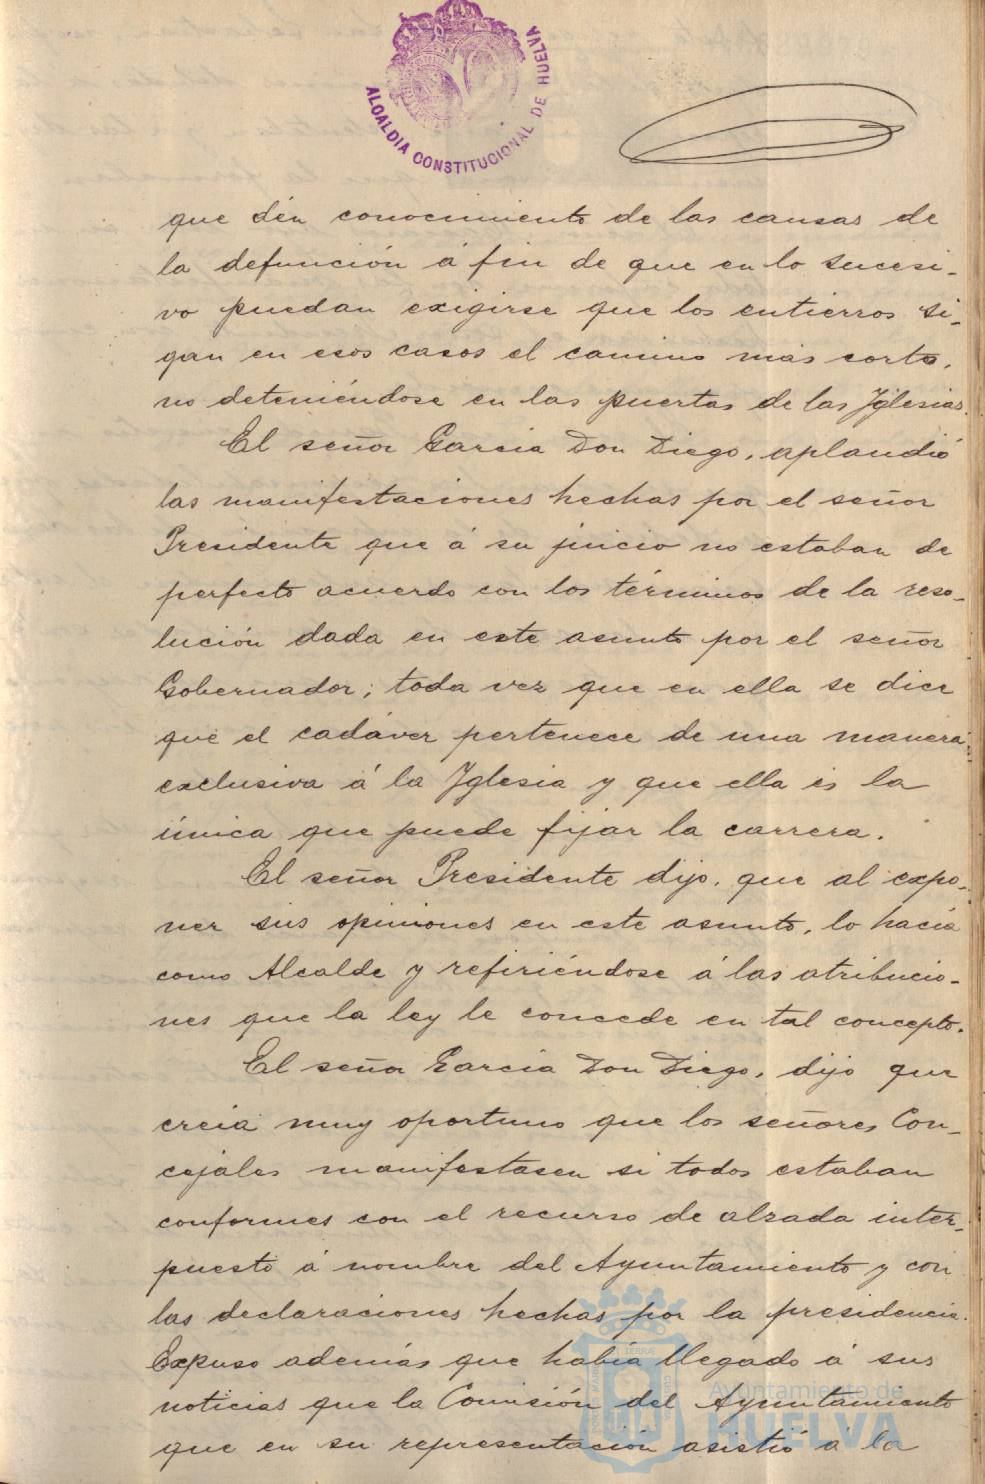 ALCALDIA CONSTITUCIONAL DE HUELVA
que dén conocimiento de las causas de
la defunción á fin de que en lo sucesi-
vo puedan exigirse que los entierros si-
gan en esos casos el camino más corto,
no deteniéndose en las puertas de las Yglesias.
El señor García Don Diego, aplaudió
las manifestaciones hechas por el señor
Presidente que á su juicio no estaban de
perfecto acuerdo con los términos de la reso-
lución dada en este asunto por el señor
Gobernador; toda vez que en ella se dice
que el cadáver pertenece de una manera
exclusiva á la Yglesia y que ella es la
única que puede fijar la carrera.
El señor Presidente dijo, que al expo-
ner sus opiniones en este asunto, lo hacía
como Alcalde y refiriéndose á las atribucio-
nes que la ley le concede en tal concepto.
El señor García Don Diego, dijo que
creía muy oportuno que los señores Con-
cejales manifestasen si todos estaban
conformes con el recurso de alzada inter-
puesto á nombre del Ayuntamiento y con
las declaraciones hechas por la presidencia.
Expuso además que había llegado á sus
noticias que la Comisión del Ayuntamiento
que en su representación asistió á la
Ayuntamiento de
HUELVA